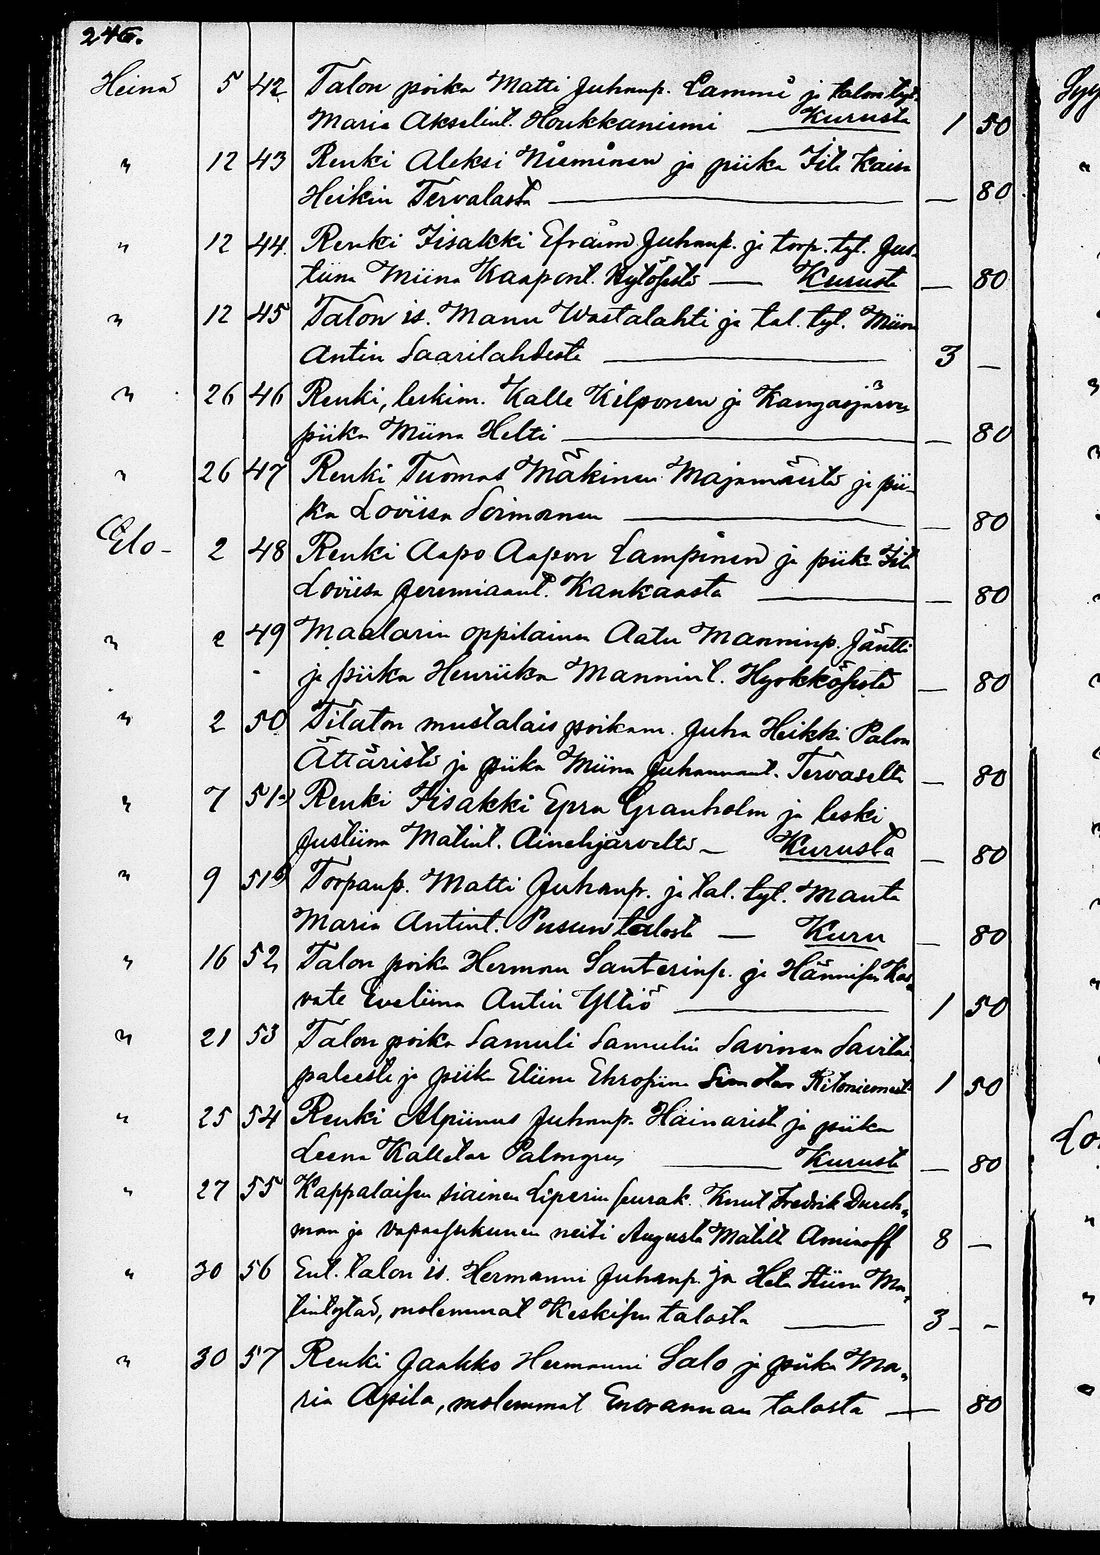 246.
Heinä 5 42 Talon poika Matti Juhanp. Lammi ja talon tyt.
Maria Akselint. Houkkaniemi — Kurusta 1 50
" 12 43 Renki Aleksi Nieminen ja piika Iita Kaisa
Heikin Tervalasta — — 80
" 12 44. Renki Iisakki Efraim Juhanp. ja torp. tyt. Jus-
tiina Miina Kaapont. — Kurusta — 80
" 12 45 Talon is. Manu Wastalahti ja tal. tyt. Miina
Antin Saarilahdesta — 3 —
" 26 46 Renki, leskim. Kalle Kilponen ja Kangasjärven
piika Miina Helti — — 80
" 26 47 Renki Tuomas Mäkinen Majamäestä ja pii-
ka Loviisa Soimonen — — 80
Elo- 2 48 Renki Aapo Aapon Lampinen ja piika Iita
Loviisa Jeremiaant. Kankaasta — — 80
" 2 49 Maalarin oppilainen Aatu Manninp. Jäntti
ja piika Henriika Mannint. Hyökköstä — 80
" 2 50 Tilaton mustalais poikam. Juha Heikki Palon
Ättäristä ja piika Miina Juhannant. Tervaselta — 80
" 7 51a) Renki Iisakki Epra Granholm ja leski
Justiina Matint. Ainehjärveltä — Kurusta — 80
" 9 51b) Torpanp. Matti Juhanp. ja tal. tyt. Manta
Maria Antint. Pusun talosta — Kuru — 80
" 16 52, Talon poika Herman Santerinp. ja Hännisen Kas-
vate Eveliina Antin Yltiö — 1 50
" 21 53 Talon poika Samuli Samulin Savinen Savilai
paleesta ja piika Eliina Ehrosiina Simolan Ritoniemestä 1 50
" 25 54 Renki Alpiinus Juhanp. Hainarist ja piika
Leena Kalletar Palmgren — Kurusta — 80
" 27 55 Kappalaisen siainen Liperin seurak. Knut Fredrik Durch-
man ja vapaasukunen neiti Augusta Matilt Aminoff 8 —
" 30 56 Ent. talon is. Hermanni Juhanp. ja Heta Stiina Ma-
tintytär, molemmat Keskisen talosta — 3 —
" 30 57 Renki Jaakko Hermanni Salo ja piika Ma-
ria Apila, molemmat Enorannan talosta — 80